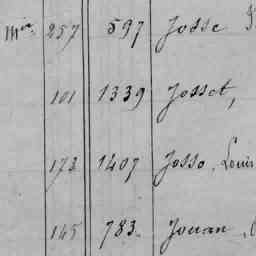 Min. 257 597 Josse
101 1339 Josset,
173 1407 Josso, Louis
145 783 Jouan,